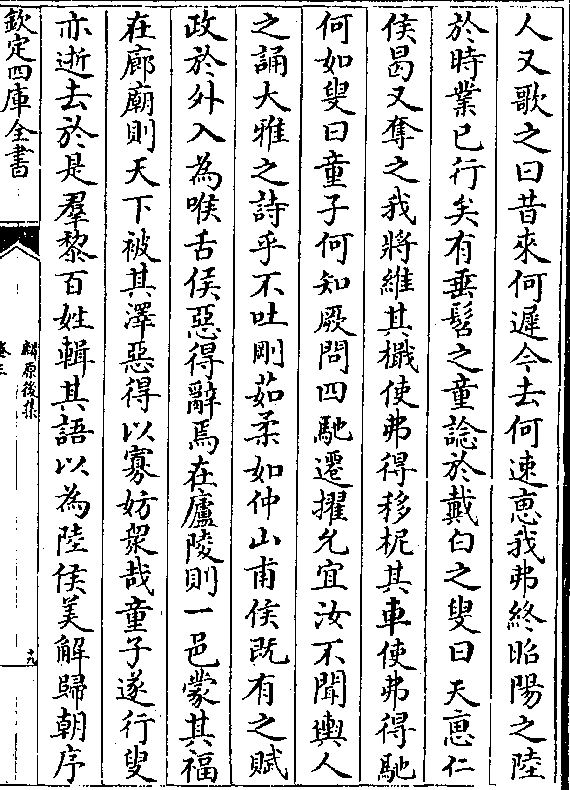 人又歌之曰昔來何遲今去何速恵我弗終昭陽之陸
於時業已行矣有垂髫之童諗於戴白之叟曰天恵仁
侯曷又奪之我將維其檝使弗得移柅其車使弗得馳
何如叟曰童子何知厥問四馳遷擢允宜汝不聞輿人
之誦大雅之詩乎不吐剛茹柔如仲山甫侯既有之賦
政於外入為喉舌侯惡得辭焉在廬陵則一邑蒙其福
在廊廟則天下被其澤惡得以寡妨衆哉童子遂行叟
亦逝去於是羣黎百姓輯其語以為陸侯美解歸朝序
欽定四庫全書
麟原後集
卷三
十九